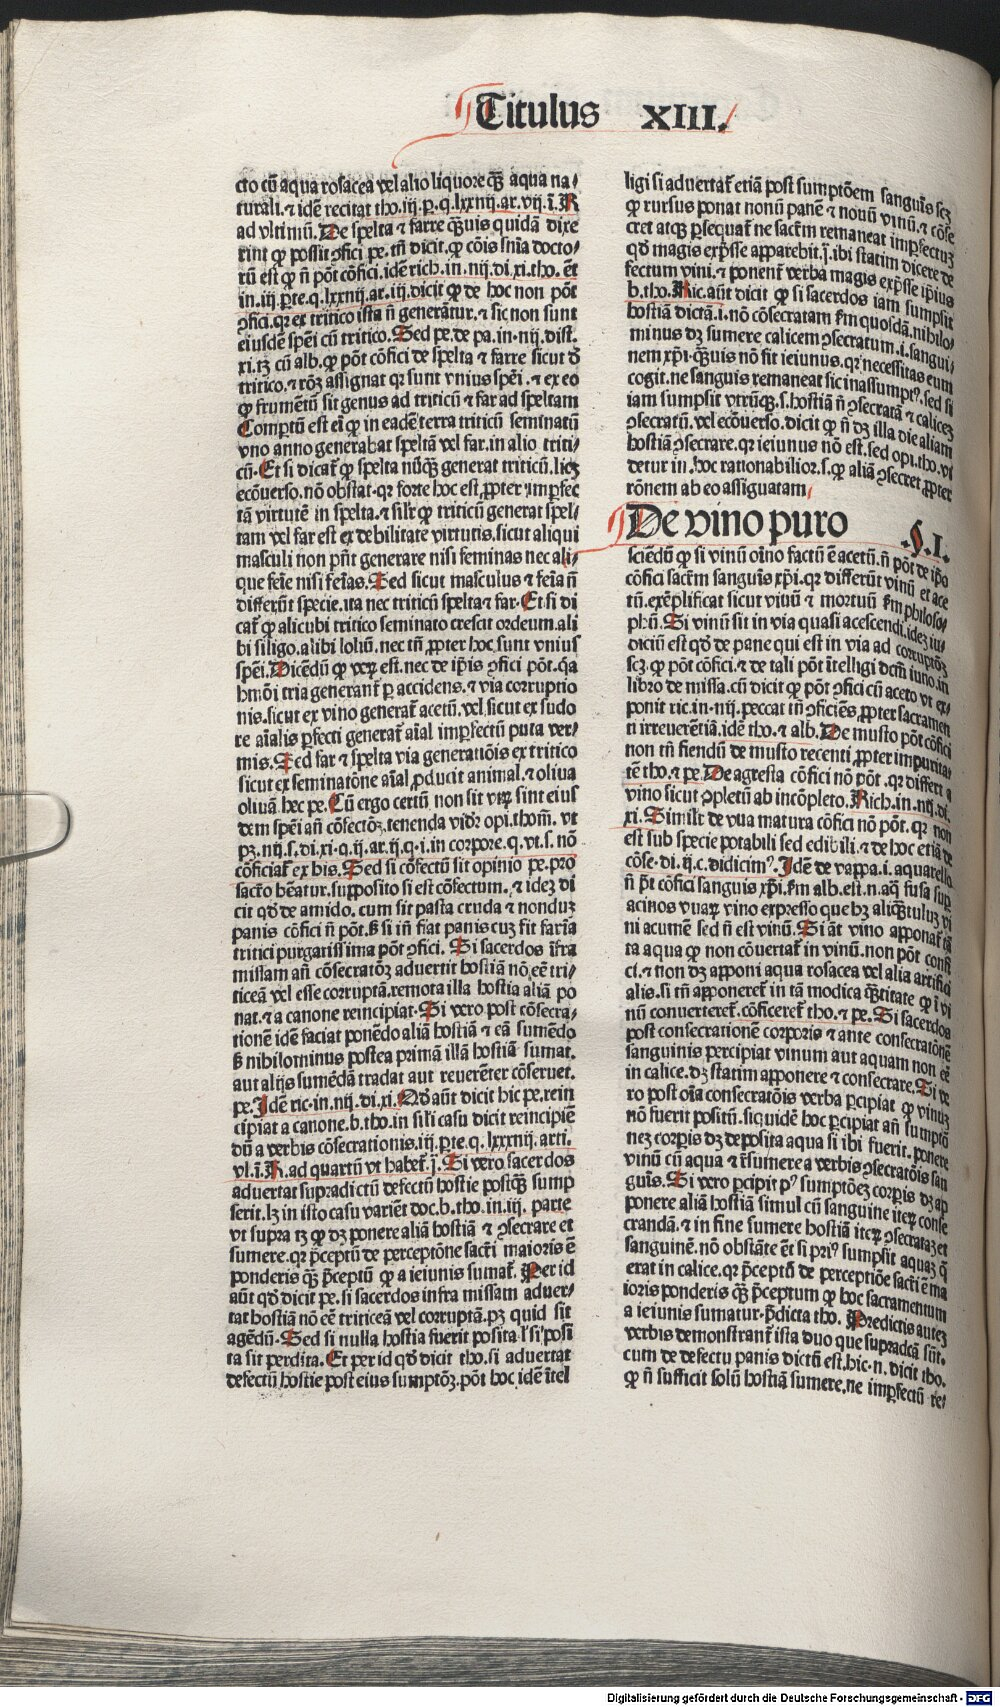 Titulus XIII.
cto cū aqua rosacea vel alio liquore q̄ȝ aqua na/
turali. ⁊ idē recitat tho. iij. p. q. lxxiiij. ar. vij. ī. R
ad vltimū. De spelta ⁊ farre q̄ȝuis quidā dixe
rint ꝙ possit ꝯfici pe. tn̄ dicit. ꝙ cōis snīa docto/
rū est ꝙ n̄ pōt cōfici. idē rich. in. iiij. di. xi. tho. ēt
in. iij. ꝑte. q. lxxiiij. ar. iij. dicit ꝙ de hoc non pōt
ꝯfici. qꝛ ex tritico ista n̄ generātur. ⁊ sic non sunt
eiusdē spēi cū tritico. Sed pe. de pa. in. iiij. dist.
xi. tꝫ cū alb. ꝙ pōt cōfici de spelta ⁊ farre sicut ð
tritico. ⁊ rōȝ assignat qꝛ sunt vnius spēi. ⁊ ex eo
ꝙ frumētū sit genus ad triticū ⁊ far ad speltam
Comptū est eī ꝙ in eadē terra triticū seminatū
vno anno generabat speltā vel far. in alio triti/
cū. Et si dicat̄ ꝙ spelta nūq̄ȝ generat triticū. licȝ
ecōuerso. nō obstat. qꝛ forte hoc est ꝓpter imperfec
tā virtutē in spelta. ⁊ silr̄ ꝙ triticū generat spel/
tam vel far est ex debilitate virtutis. sicut aliqui
masculi non pn̄t generare nisi feminas nec ali/
que feīe nisi feīas. Sed sicut masculus ⁊ feīa n̄
differūt specie. ita nec triticū spelta ⁊ far. Et si di
cat̄ ꝙ alicubi tritico seminato crescit ordeum. ali
bi siligo. alibi loliū. nec tn̄ ꝓpter hoc sunt vnius
spēi. Dicendū ꝙ veꝝ est. nec de ip̄is ꝯfici pōt. q̄a
hm̄oi tria generant̄ p accidens. ⁊ via corruptio
nis. sicut ex vino generat̄ acetū. vel sicut ex sudo
re aīalis ꝑfecti generat̄ aīal imꝑfectū puta ver/
mis. Sed far ⁊ spelta via generatiōis ex tritico
sicut ex seminatōne aīal ꝓducit animal. ⁊ oliua
oliuā. hec pe. Cū ergo certū non sit vtꝝ sint eius
dem spēi an̄ cōfectōȝ. tenenda vidꝫ opi. thom. vt
pꝫ. iiij. s. di. xi. q. ij. ar. ij. q. i. in corpore. q. vt. s. nō
cōficiat̄ ex his. Sed si cōfectū sit opinio pe. pro
sacrō hēatur. supposito si est cōfectum. ⁊ ideȝ di
cit qð de amido. cum sit pasta cruda ⁊ nonduȝ
panis cōfici n̄ pōt. ß si in̄ fiat panis cuȝ fit farīa
tritici purgatissima pōt ꝯfici. Si sacerdos īfra
missam an̄ cōsecratōȝ aduertit hostiā nō eē tri/
ticeā vel esse corruptā. remota illa hostia aliā po
nat. ⁊ a canone reincipiat. Si vero post cōsecra/
tionē idē faciat ponēdo aliā hostiā ⁊ eā sumēdo
ß nihilominus postea primā illā hostiā sumat.
aut alijs sumēdā tradat aut reuerēter cōseruet.
pe. Idē ric. in. iiij. di. xi. Qð aūt dicit hic pe. rein
cipiat a canone. b. tho. in sili casu dicit reincipiē
dū a verbis cōsecrationis. iij. ꝑte. q. lxxxiij. arti.
vl. ī. R. ad quartū vt habet̄. j. Si vero sacerdos
aduertat supradictū defectū hostie postq̄ȝ sump
serit. lȝ in isto casu variēt doc. b. tho. in. iij. parte
vt supra tꝫ ꝙ dȝ ponere aliā hostiā ⁊ ꝯsecrare et
sumere. qꝛ p̄ceptū de perceptōne sacr̄i maioris ē
ponderis q̄ȝ p̄ceptū ꝙ a ieiunis sumat̄. Per id
aūt qð dicit pe. si sacerdos infra missam aduer/
tat hostiā nō eē triticeā vel corruptā. pꝫ quid sit
agēdū. Sed si nulla hostia fuerit posita l' si posi
ta sit perdita. Et per id qð dicit tho. si aduertat
defectū hostie post eius sumptōȝ. pōt hoc idē ītel
ligi si aduertat̄ etiā post sumptōem sanguīs scȝ
ꝙ rursus ponat nouū panē ⁊ nouū vinū. ⁊ cōse
cret atqȝ ꝑsequat̄ ne sacr̄m remaneat imꝑfectuȝ
qð magis exp̄sse apparebit. j. ibi statim dicere de
fectum vini. ⁊ ponent̄ verba magis exp̄sse ip̄ius
b. tho. Ric. aūt dicit ꝙ si sacerdos iam sumpsit
hostiā dictā. i. nō cōsecratam ẜm quosdā. nihilo/
minus dȝ sumere calicem ꝯsecratum. i. sangui/
nem xp̄i. q̄ȝuis nō sit ieiunus. qꝛ necessitas eum
cogit. ne sanguis remaneat sic inassumptꝰ. sed si
iam sumpsit vtrūqȝ. s. hostiā n̄ ꝯsecratā ⁊ caliceȝ
ꝯsecratū. vel ecōuerso. dicit ꝙ n̄ dȝ illa die aliam
hostiā ꝯsecrare. qꝛ ieiunus nō est. sed opi. tho. vt
detur in. hoc rationabilior. s. ꝙ aliā ꝯsecret ꝓpter
rōnem ab eo assignatam
De vino puro .§.I.
sciēdū ꝙ si vinū oīno factū ē acetū. n̄ pōt de ip̄o
cōfici sacr̄m sanguīs xp̄i. qꝛ differūt vinū et ace
tū. exēplificat sicut viuū ⁊ mortuū ẜm philoso/
phū. Si vinū sit in via quasi acescendi. ideȝ iu/
diciū est qð de pane qui est in via ad corruptōȝ
scȝ. ꝙ pōt cōfici. ⁊ de tali pōt ītelligi dcm̄ iuno. in
libro de missa. cū dicit ꝙ pōt ꝯfici cū aceto vt ex/
ponit ric. in. iiij. peccat tn̄ ꝯficiēs ꝓpter sacramen
ti irreuerētiā. idē tho. ⁊ alb. De musto pōt cōfici
non tn̄ fiendū de musto recenti ꝓpter impurita/
tē tho. ⁊ pe. De agresta cōfici nō pōt. qꝛ differt a
vino sicut ꝯpletū ab incōpleto. Rich. in. iiij. di.
xi. Similr̄ de vua matura cōfici nō pōt. qꝛ non
est sub specie potabili sed edibili. ⁊ de hoc etiā de
cōse. di. ij. c. didicimꝰ. Idē de vappa. i. aquarello
n̄ p̄t cōfici sanguis xp̄i. ẜm alb. est. n. aq̄ fusa sup
acinos vuaꝝ vino expresso que hȝ aliq̄ȝtuluȝ vi
ni acumē sed n̄ est vinū. Si āt vino apponat̄ tā
ta aqua ꝙ non cōuertat̄ in vinū. non pōt confi
ci. ⁊ non dȝ apponi aqua rosacea vel alia artifici
alis. si tn̄ apponeret̄ in tā modica q̄ȝtitate ꝙ ī vi
nū conuerteret̄. cōficeret̄ tho. ⁊ pe. Si sacerdos
post consecrationē corporis ⁊ ante consecratōnē
sanguinis percipiat vinum aut aquam non eē
in calice. dȝ statim apponere ⁊ consecrare. Si ve
ro post oīa consecratōis verba ꝑcipiat ꝙ vinuȝ
nō fuerit positū. siquidē hoc ꝑcipiat an̄ sumptō
neȝ corꝑis dȝ deposita aqua si ibi fuerit. ponere
vinū cū aqua ⁊ r̄sumere a verbis ꝯsecratōis san
guis. Si vero ꝑcipit pꝰ sumptōeȝ corꝑis dȝ ap
ponere aliā hostiā simul cū sanguine iteꝝ conse
crandā. ⁊ in fine sumere hostiā iteꝝ ꝯsecrataȝ et
sanguinē. nō obstāte ēt si priꝰ sumpsit aquaȝ q̄
erat in calice. qꝛ p̄ceptū de perceptiōe sacr̄i ē ma
ioris ponderis q̄ȝ p̄ceptum ꝙ hoc sacramentum
a ieiunis sumatur. p̄dicta tho. Predictis auteȝ
verbis demonstrant̄ ista duo que supradcā sūt.
cum de defectu panis dictū est. hic. n. dicit tho.
ꝙ n̄ sufficit solū hostiā sumere. ne imꝑfectū re/
Digitalisierung gefördert durch die Deutsche Forschungsgemeinschaft - DFG